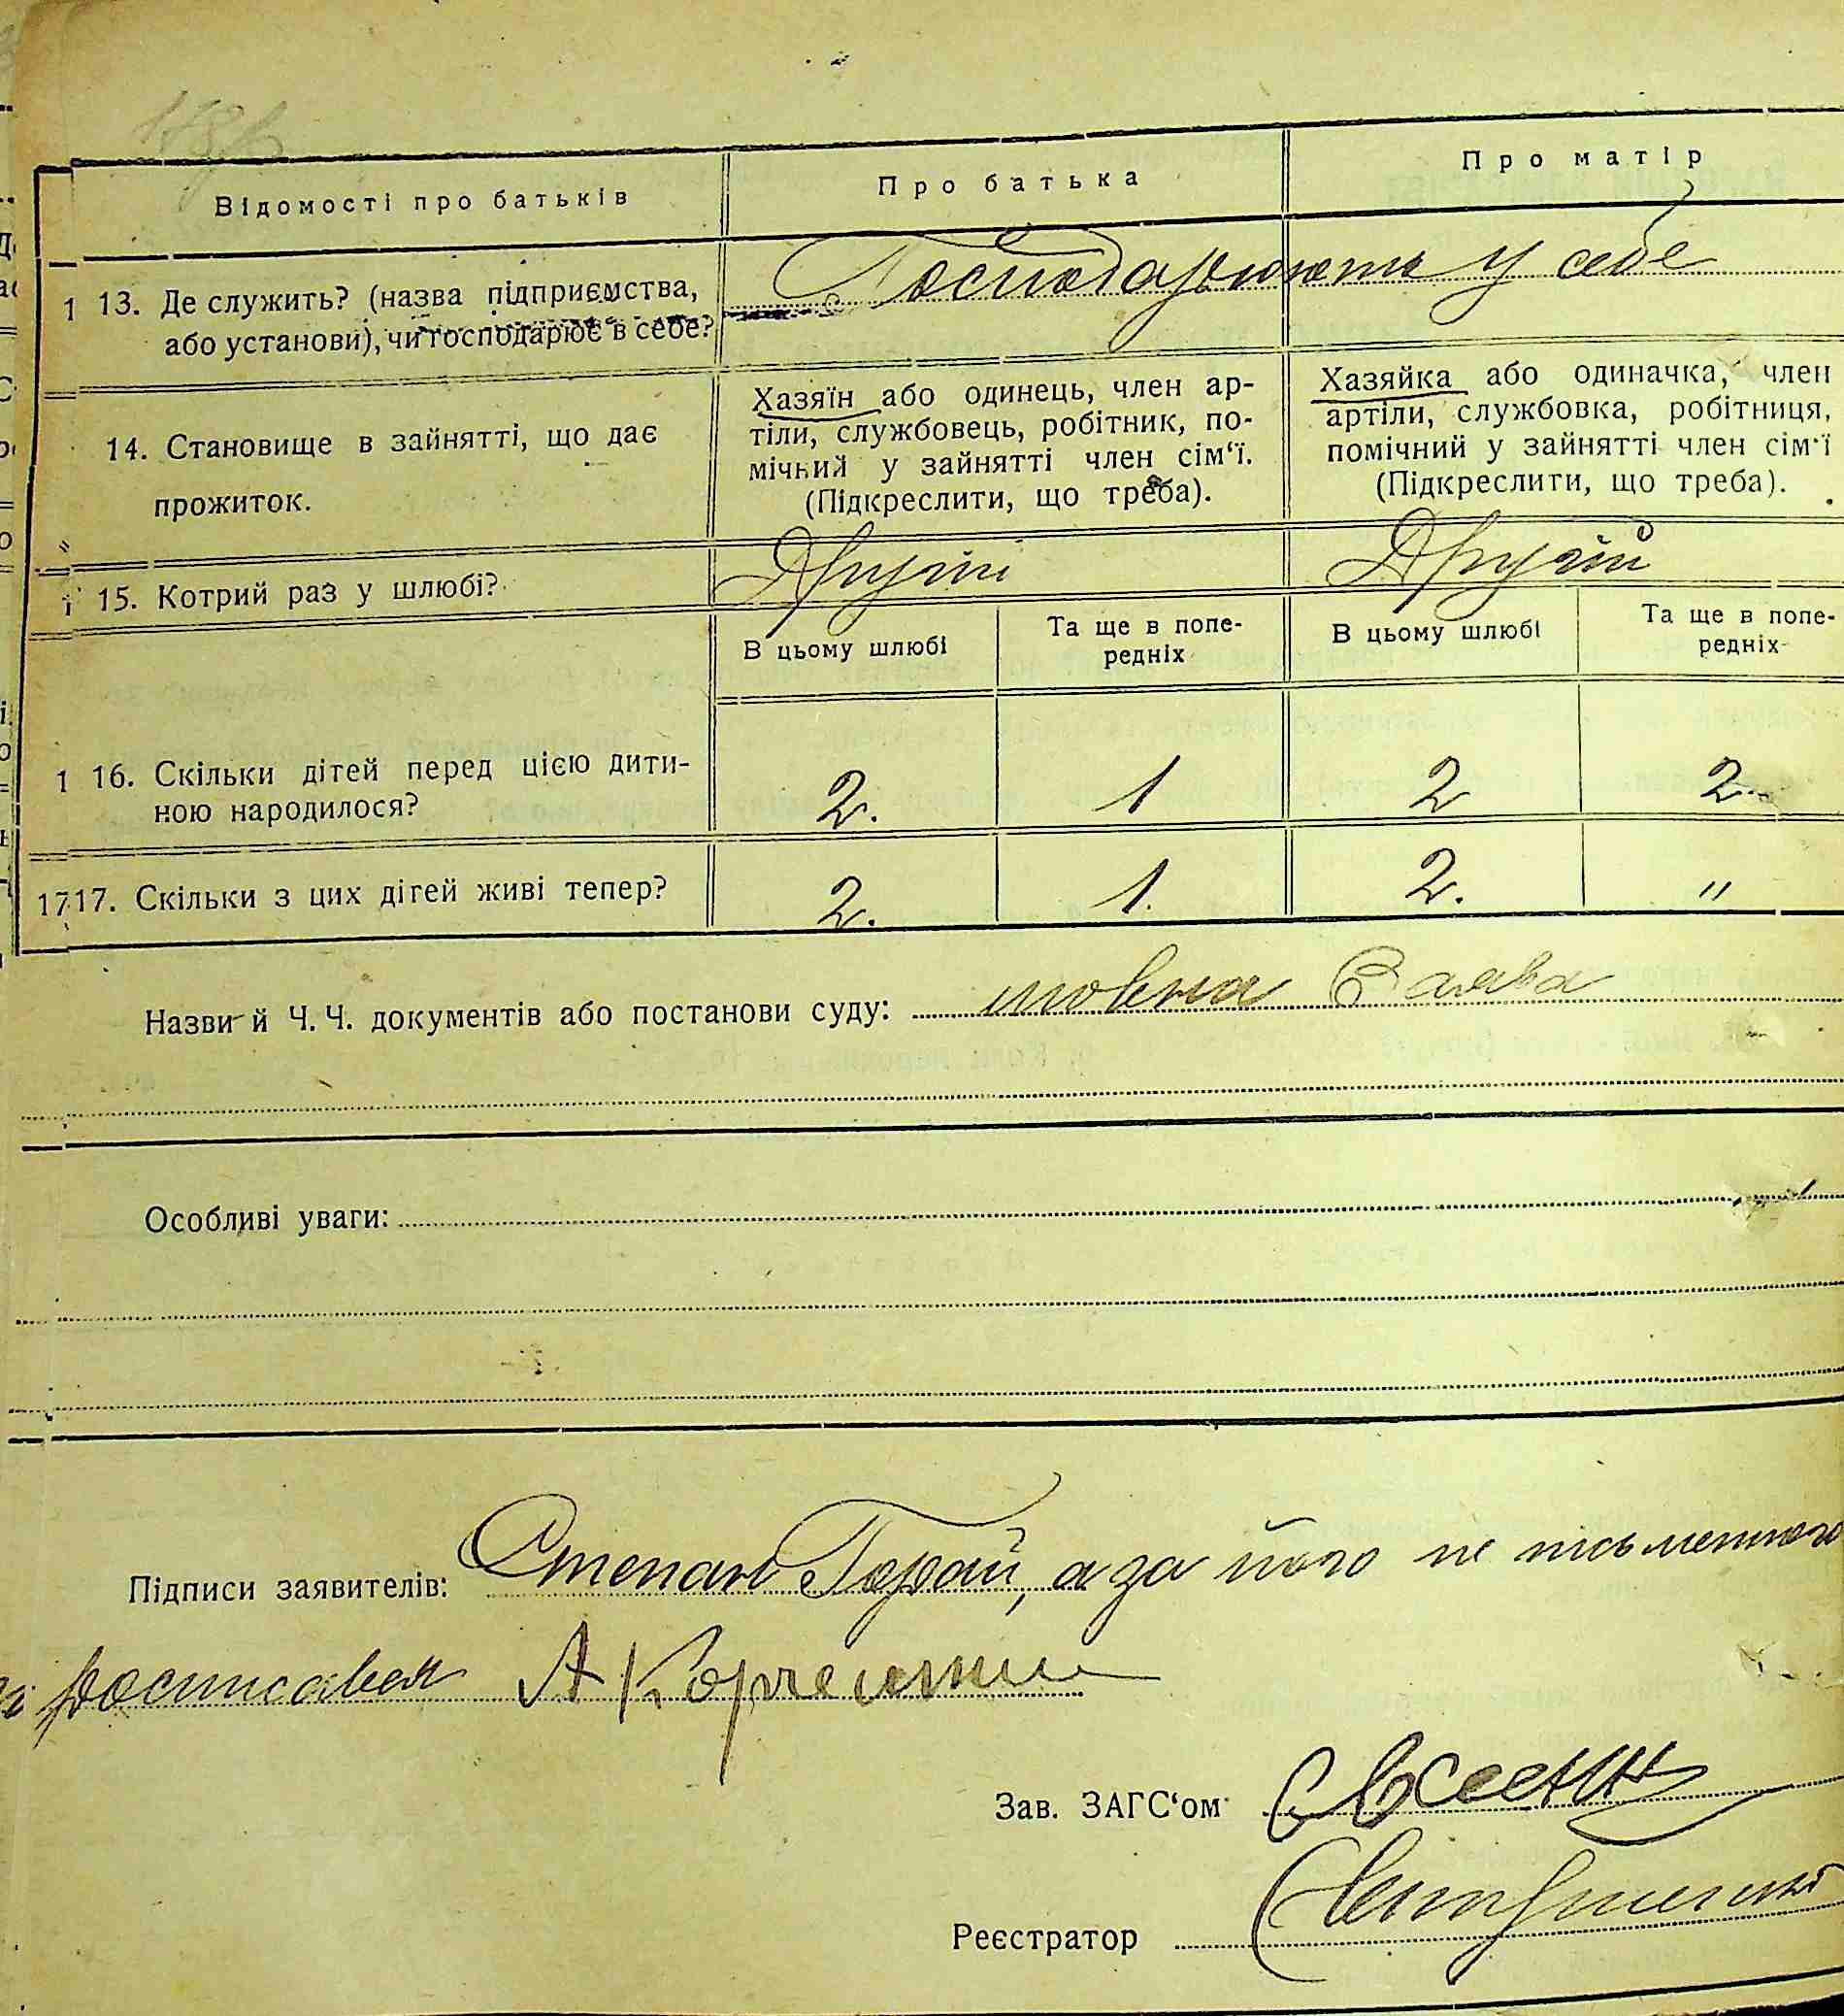 Відомості про батьків
Про батька
Про матір
1 13. Де служить? (назва підприємства,
або установи), чи господарює в себе?
Господарюють у себе
14. Становище в зайнятті, що дає
прожиток.
Хазяїн або одинець, член ар-
тіли, службовець, робітник, по-
мічний у зайнятті член сім‘ї.
(Підкреслити, що треба).
Хазяйка або одиначка, член
артіли, службовка, робітниця,
помічний у зайнятті член сім‘ї
(Підкреслити, що треба).
15. Котрий раз у шлюбі?
Другий
Другий
В цьому шлюбі
Та ще в попе-
редніх
В цьому шлюбі
Та ще в попе-
редніх
1 16. Скільки дітей перед цією дити-
ною народилося?
2.
1
2
2.
1717. Скільки з цих дігей живі тепер?
2.
1.
2.
"
Назви й Ч. Ч. документів або постанови суду: мовна Заява
Особливі уваги:
Підписи заявителів: Степан Горай, а за його не письменного
росписався А Корч
Зав. ЗАГС‘ом
Реєстратор